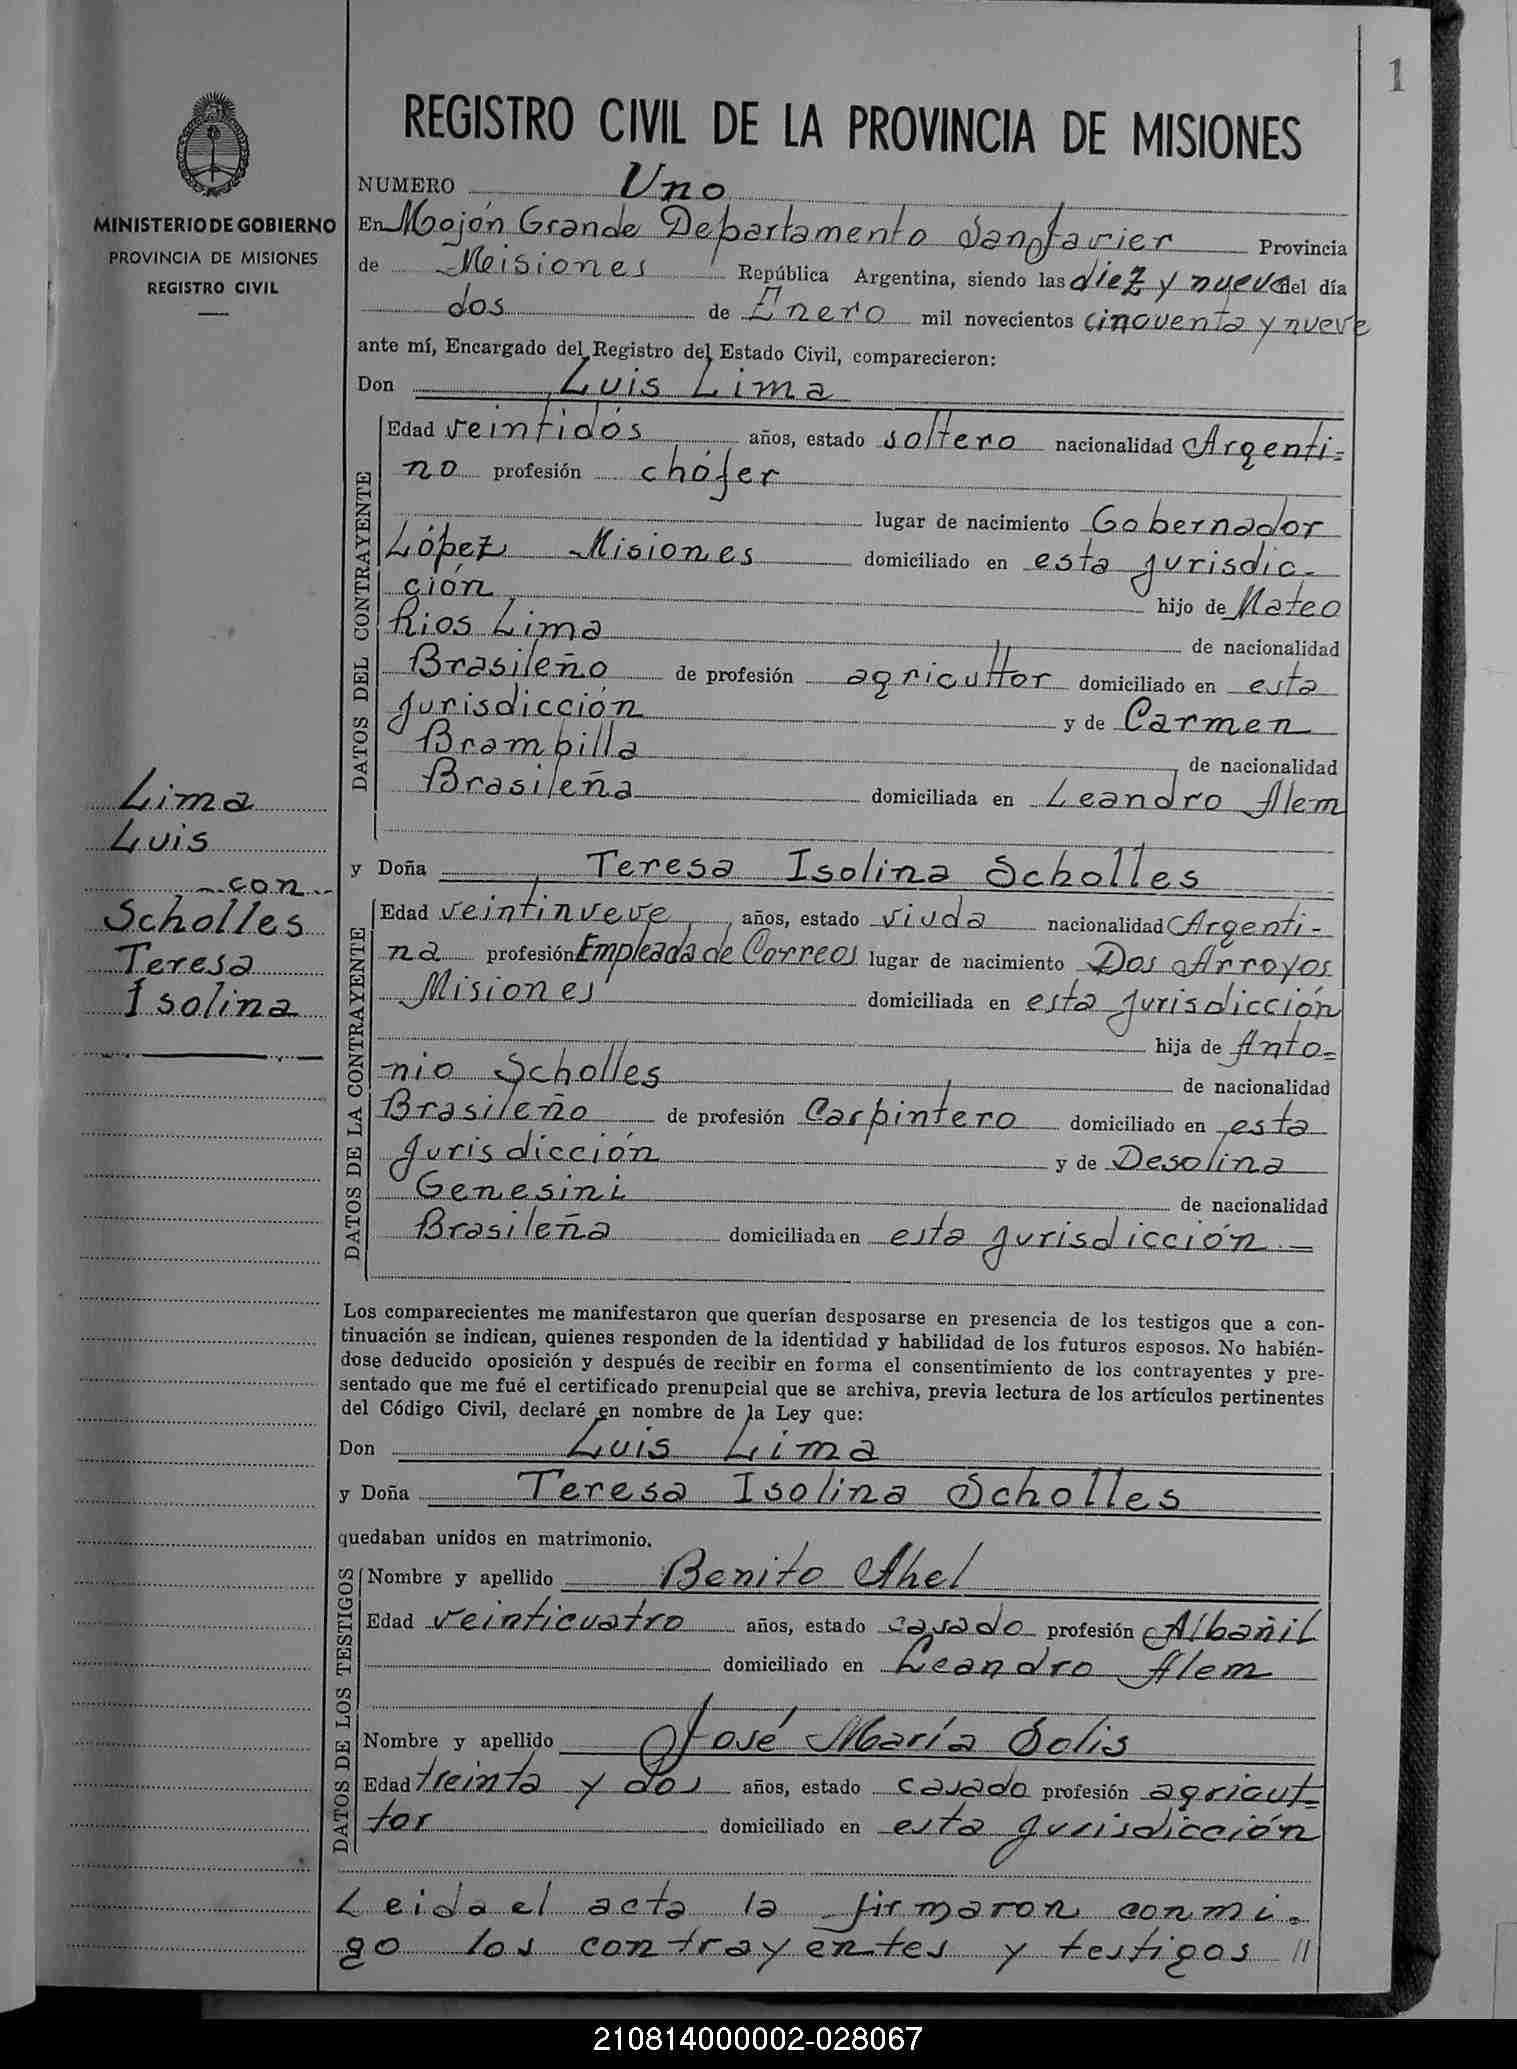 1
REGISTRO CIVIL DE LA PROVINCIA DE MISIONES
MINISTERIO DE GOBIERNO
PROVINCIA DE MISIONES
REGISTRO CIVIL
NUMERO Uno
En Mojón Grande Departamento San Javier Provincia
de Misiones República Argentina, siendo las diez y nueve del día
dos de Enero mil novecientos cincuenta y nueve
ante mí, Encargado del Registro del Estado Civil, comparecieron:
Don Luis Lima
DATOS DEL CONTRAYENTE
Edad veintidós años, estado soltero nacionalidad Argenti=
no profesión chófer
lugar de nacimiento Gobernador
López Misiones domiciliado en esta jurisdic-
ción hijo de Mateo
Rios Lima de nacionalidad
Brasileño de profesión agricultor domiciliado en esta
jurisdicción y de Carmen
Brambilla de nacionalidad
Brasileña domiciliada en Leandro Alem
Lima
Luis
con
Scholles
Teresa
Isolina
y Doña Teresa Isolina Scholles
DATOS DE LA CONTRAYENTE
Edad veintinueve años, estado viuda nacionalidad Argenti-
na profesión Empleada de Correos lugar de nacimiento Dos Arroyos
Misiones domiciliada en esta jurisdicción
hija de Anto=
nio Scholles de nacionalidad
Brasileño de profesión Carpintero domiciliado en esta
jurisdicción y de Desolina
Genesini de nacionalidad
Brasileña domiciliada en esta jurisdicción.=
Los comparecientes me manifestaron que querían desposarse en presencia de los testigos que a con-
tinuación se indican, quienes responden de la identidad y habilidad de los futuros esposos. No habién-
dose deducido oposición y después de recibir en forma el consentimiento de los contrayentes y pre-
sentado que me fué el certificado prenupcial que se archiva, previa lectura de los artículos pertinentes
del Código Civil, declaré en nombre de la Ley que:
Don Luis Lima
y Doña Teresa Isolina Scholles
quedaban unidos en matrimonio.
DATOS DE LOS TESTIGOS
Nombre y apellido Benito Ahel
Edad veinticuatro años, estado casado profesión Albañil
domiciliado en Leandro Alem
Nombre y apellido José María Solis
Edad treinta y dos años, estado casado profesión agricul=
tor domiciliado en esta jurisdicción
Leida el acta la firmaron conmi-
go los contrayentes y testigos //
210814000002-028067